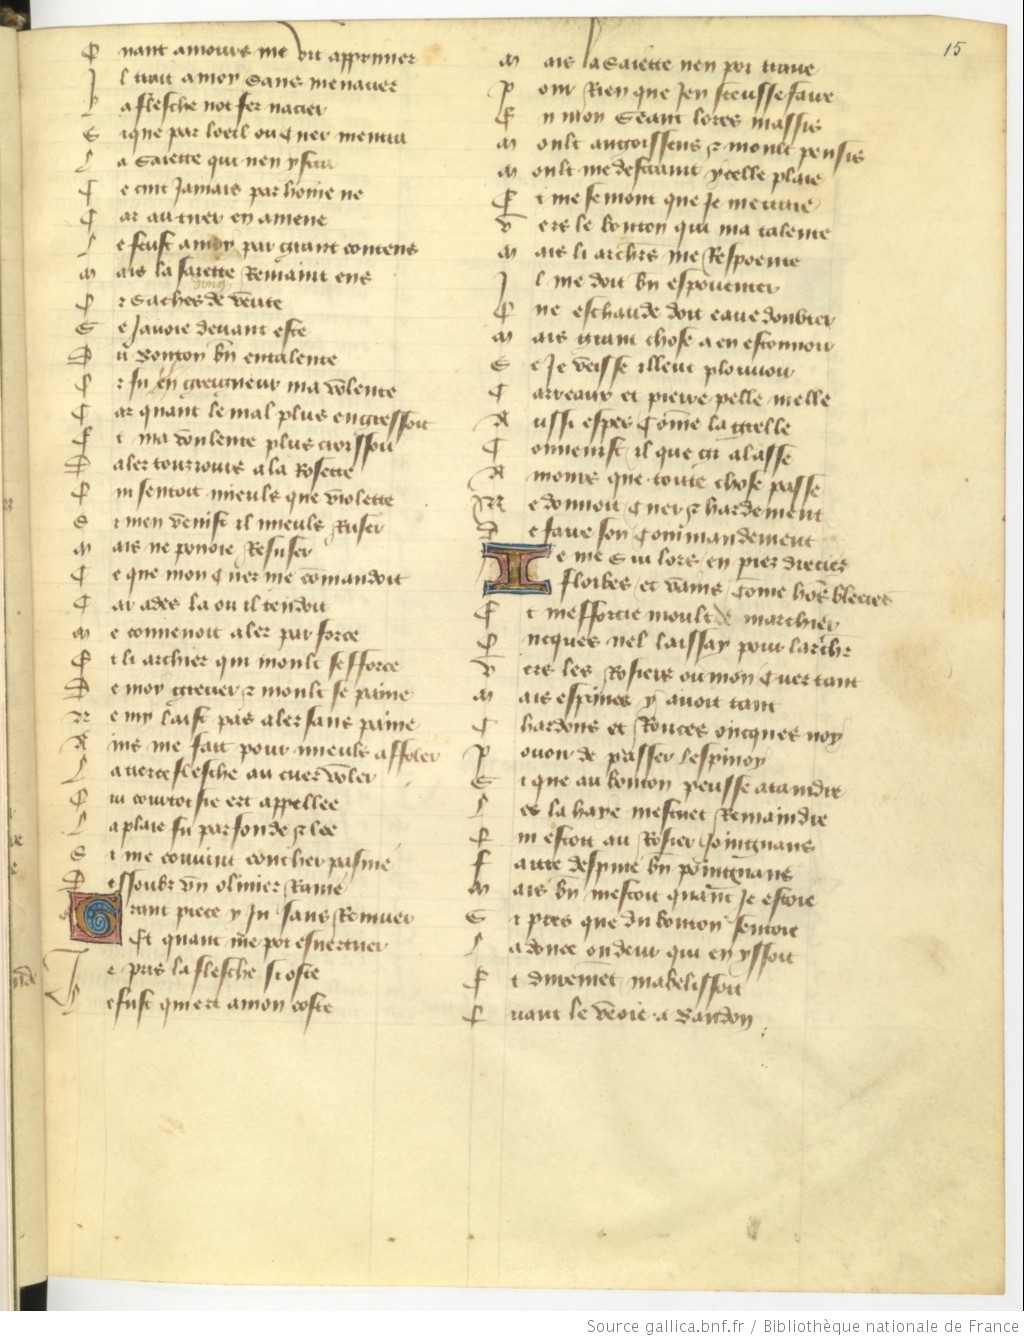 Q uant amours me vit apprimer
I l trait a moy sans menacier
L a flesche not fer nacier
S ique par loeil ou cuer mentra
L a saiette qui nen ystra
C e cuit Jamais par home ne
C ar au tirer en amene
L e fust a moy par grant contens
M ais la saiette Remaint ens
E t saches de verite
S e Javoie devant este
D u bouton bn entalente
E r fu greigneur ma volente
C ar quant le mal plus engressoit
E t ma voulente plus croissoit
D aler tourjours a la Rosette
Q ui sentoit mieulx que violette
S i men venist il mieulx Ruser
M ais ne pouoie Refuser
C e que mon Cuer me comandoit
C ar ades la ou il tendoit
M e conuenoit aler par force
E t li archier qui moult sefforce
D e moy grever et moult se paine
N e my laist pas aler sans paine
A ins me fait pour mieulx affoler
L a tierce flesche au cuer voler
Q ui courtoisie ert appellee
L a plaie fu parfonde et lee
S i me couuint coucher pasme
D essoubz vn olivier Rame
Grant piece y Iu sans Remuer
Et quant me poi esuertuer
Ie pris la flesche si oste
L e fust qui ert a mon coste
15
M ais la Saiette nen poi traire
P our Rien que Jen sceusse faire
E n mon Seant lores massis
M oult angoisseus et moult pensis
M oult me destraint ycelle plaie
E t me semont que Je me traie
V ers le bouton qui ma talente
M ais li archers me Respoente
I l me doit bn espouenter
Q ue eschaude doit eaue doubter
M ais grant chose a en estouuoir
S e Je veisse illeuc plouuoir
C arreaux et pierre pelle melle
A ussi espes Come la grelle
C onuenist il que gi alasse
A mours que toute chose passe
M e donnoit Cuer et hardement
D e faire son Commandement
Ie me Sui lors en piez drecies
Floibes et vains Come hos blecies
E t mefforcie moult de marchier
O ncques nel laissay pour larcher
V ers les Rosiers ou mon Cuer tant
M ais espines y auoit tant
C hardons et Ronces oncques noy
P ouoir de passer lespinoy
S i que au bouton peusse ataindre
L es la haye mestuet Remaindre
Q ui estoit au Rosier Joingnans
F aitte despine bn poingnans
M ais bn mestoit quant Je estoie
S i pres que du bouton sentoie
L a douce oudeur qui en yssoit
E t durement mabelissoit
Q uant le veoie a bandon
Source gallica.bnf.fr / Bibliothèque nationale de France